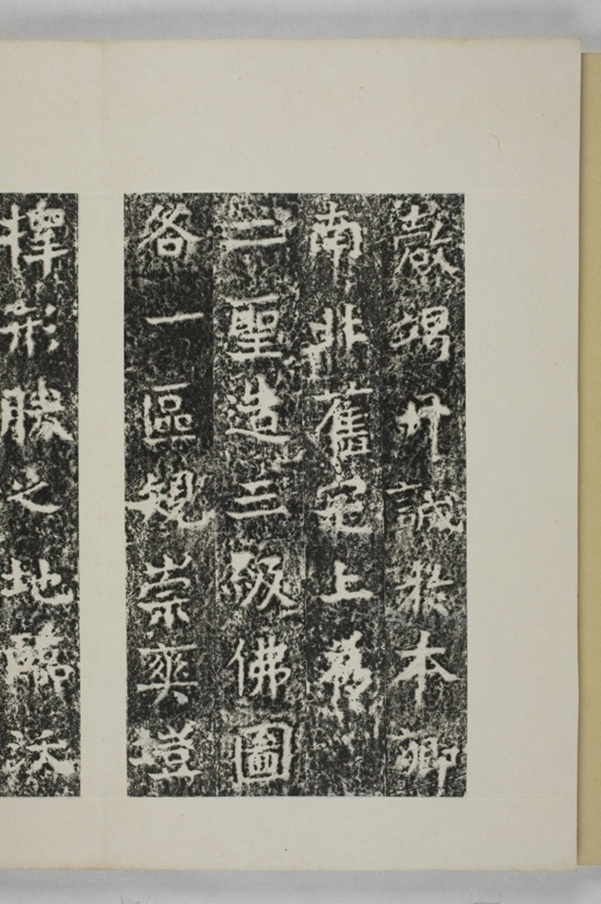 竭丹誠於本鄉
南北舊宅上為
二聖造三級佛圖
各一區規崇爽塏
擇形勝之地臨沃